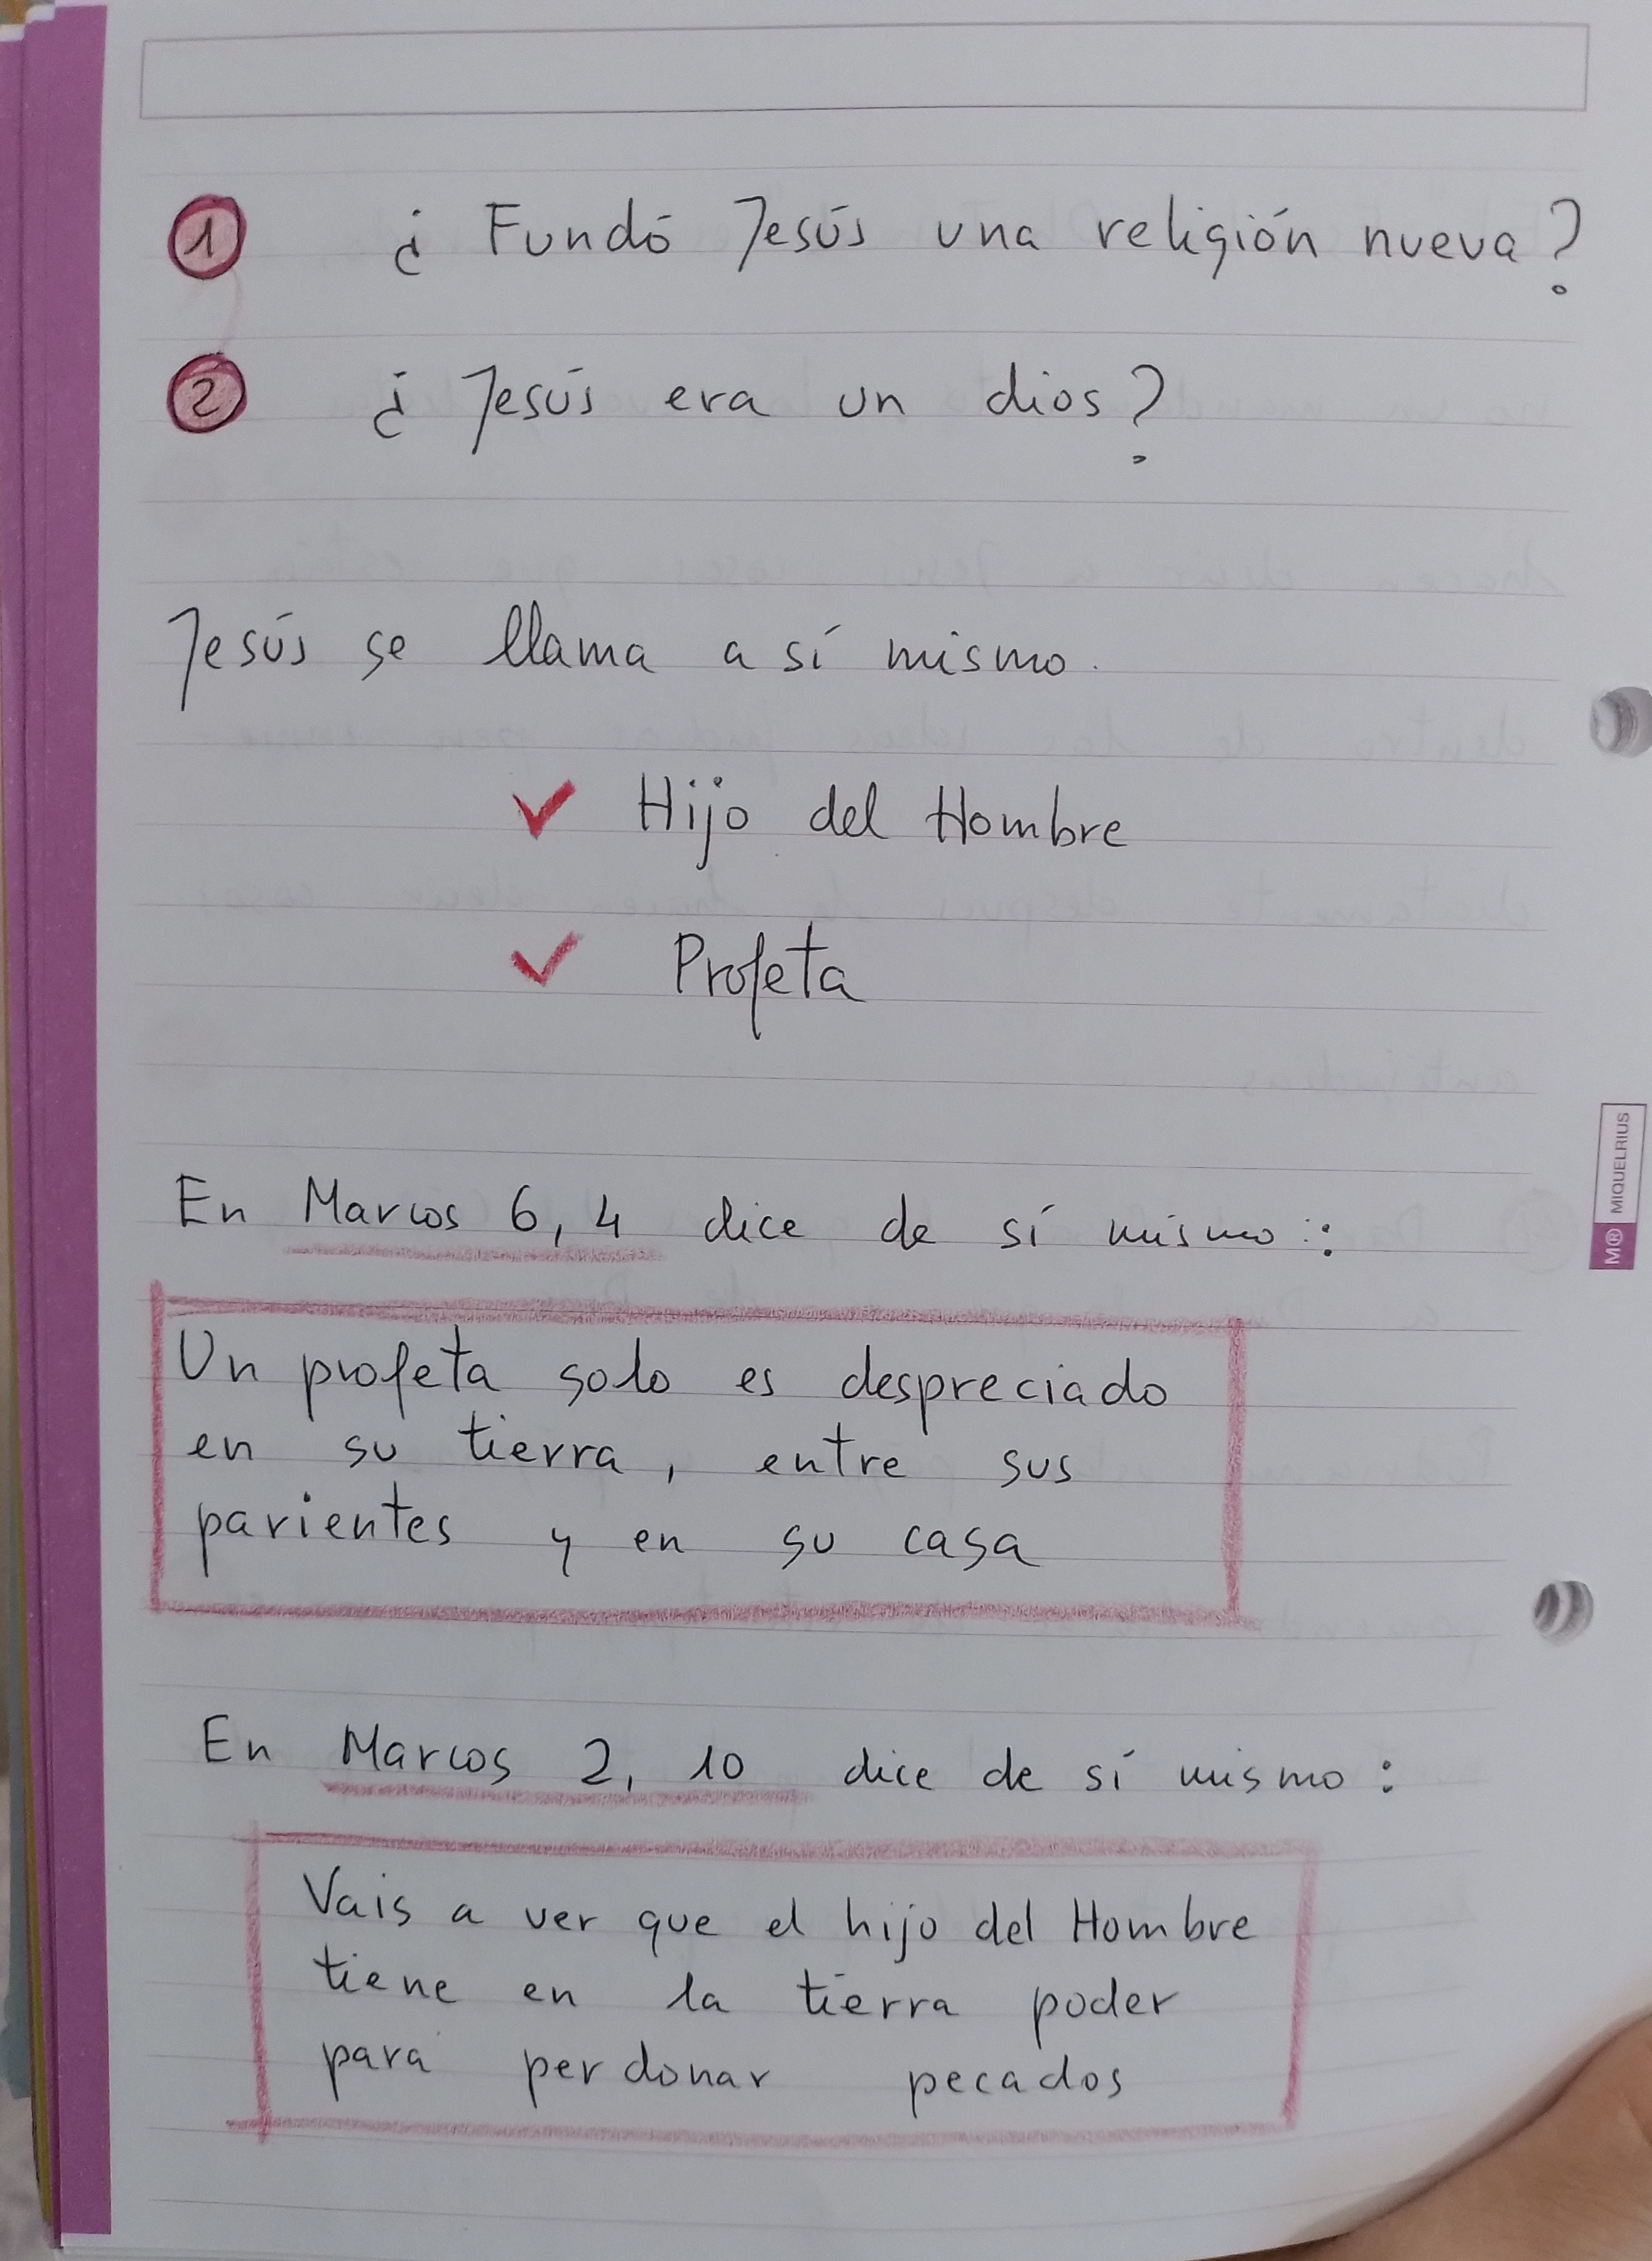 1 ¿Fundó Jesús una religión nueva?
2 ¿Jesús era un dios?
Jesús se llama a sí mismo.
✓ Hijo del Hombre
✓ Profeta
En Marcos 6, 4 dice de sí mismo:
Un profeta solo es despreciado
en su tierra, entre sus
parientes y en su casa
En Marcos 2, 10 dice de sí mismo:
Vais a ver que el hijo del Hombre
tiene en la tierra poder
para perdonar pecados
M® MIQUELRIUS